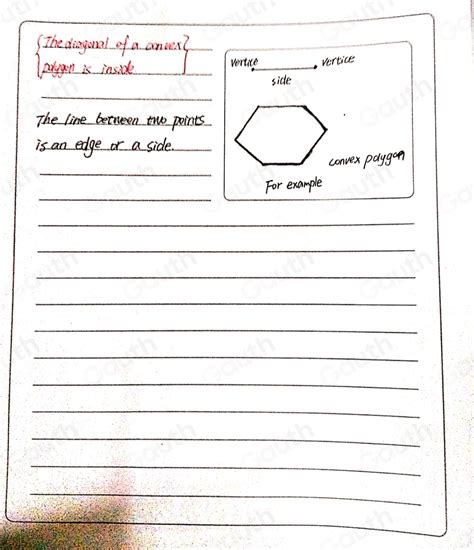 {The diagonal of a convex}
{polygon is inside}
The line between two points
is an edge or a side.
vertice vertice
side
convex polygon
For example
Gauth